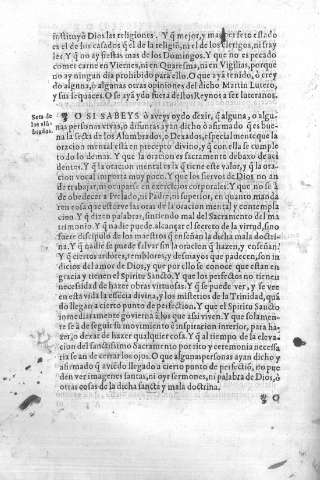 instituyò Dios las religiones. Y q̃ mejor, y mas perfeto estado
es el de los casados q̃ el de la religiõ, ni el de los clerigos, ni fray
les. Y q̃ no ay fiestas mas de los Domingos. Y que no es pecado
comer carne en Viernes, ni en Quaresma, ni en Vigilias, porque
no ay ningun dia prohibido para ello. O que aya tenido, ò crey
do alguna, o algunas otras opiniones del dicho Martin Lutero,
y sus sequaces. O se aya ydo fuera destos Reynos a ser luteranos.
Seta de
los alũ
brados.
O SI SABEYS ò aveys oydo dezir, q̃ alguna, o algu-
nas personas vivas, o difuntas ayan dicho ò afirmado q̃ es bue-
na la secta de los Alumbrados, o Dexados, especialmente que la
oracion mental està en precepto divino, y q̃ con ella se cumple
todo lo demas. Y que la oracion es sacramento debaxo de acci
dentes. Y q̃ la oracion mental es la q̃ tiene este valor, y q̃ la ora-
cion vocal importa muy poco. Y que los siervos de Dios no an
de trabajar, ni ocuparse en exercicios corporales. Y que no se à
de obedecer a Prelado, ni Padre, ni superior, en quanto manda
ren cosa que estorve las oras de la oracion mental y contempla
cion. Y q̃ dizen palabras, sintiendo mal del Sacramento del ma
trimonio. Y q̃ nadie puede alcançar el secreto de la virtud, sino
fuere discipulo de los maestros q̃ enseñan la dicha mala doctri-
na. Y q̃ nadie se puede salvar sin la oracion q̃ hazen, y enseñan.
Y q̃ ciertos ardores, temblores, y desmayos que padecen, son in
dicios del amor de Dios, y que por ello se conoce que estan en
gracia y tienen el Spiritu Sancto. Y que los perfectos no tienen
necessidad de hazer obras virtuosas. Y q̃ se puede ver, y se vee
en esta vida la essēcia divina, y los misterios de la Trinidad, quã
do llegan a cierto punto de perfection. Y que el Spiritu Sancto
inmediatamente govierna à los que assi viven. Y que solamen-
te se à de seguir su movimiento è inspiracion interior, para ha-
zer, o dexar de hazer qualquier cosa. Y q̃ al tiempo de la eleva
cion del santissimo Sacramento por rito y ceremonia necessa
ria se an de cerrar los ojos. O que algunas personas ayan dicho y
afirmado q̃ aviēdo llegado a cierto punto de perfectiõ, no pue
den ver imagenes santas, ni oyr sermones, ni palabra de Dios, ò
otras cosas de la dicha secta y mala doctrina.
O